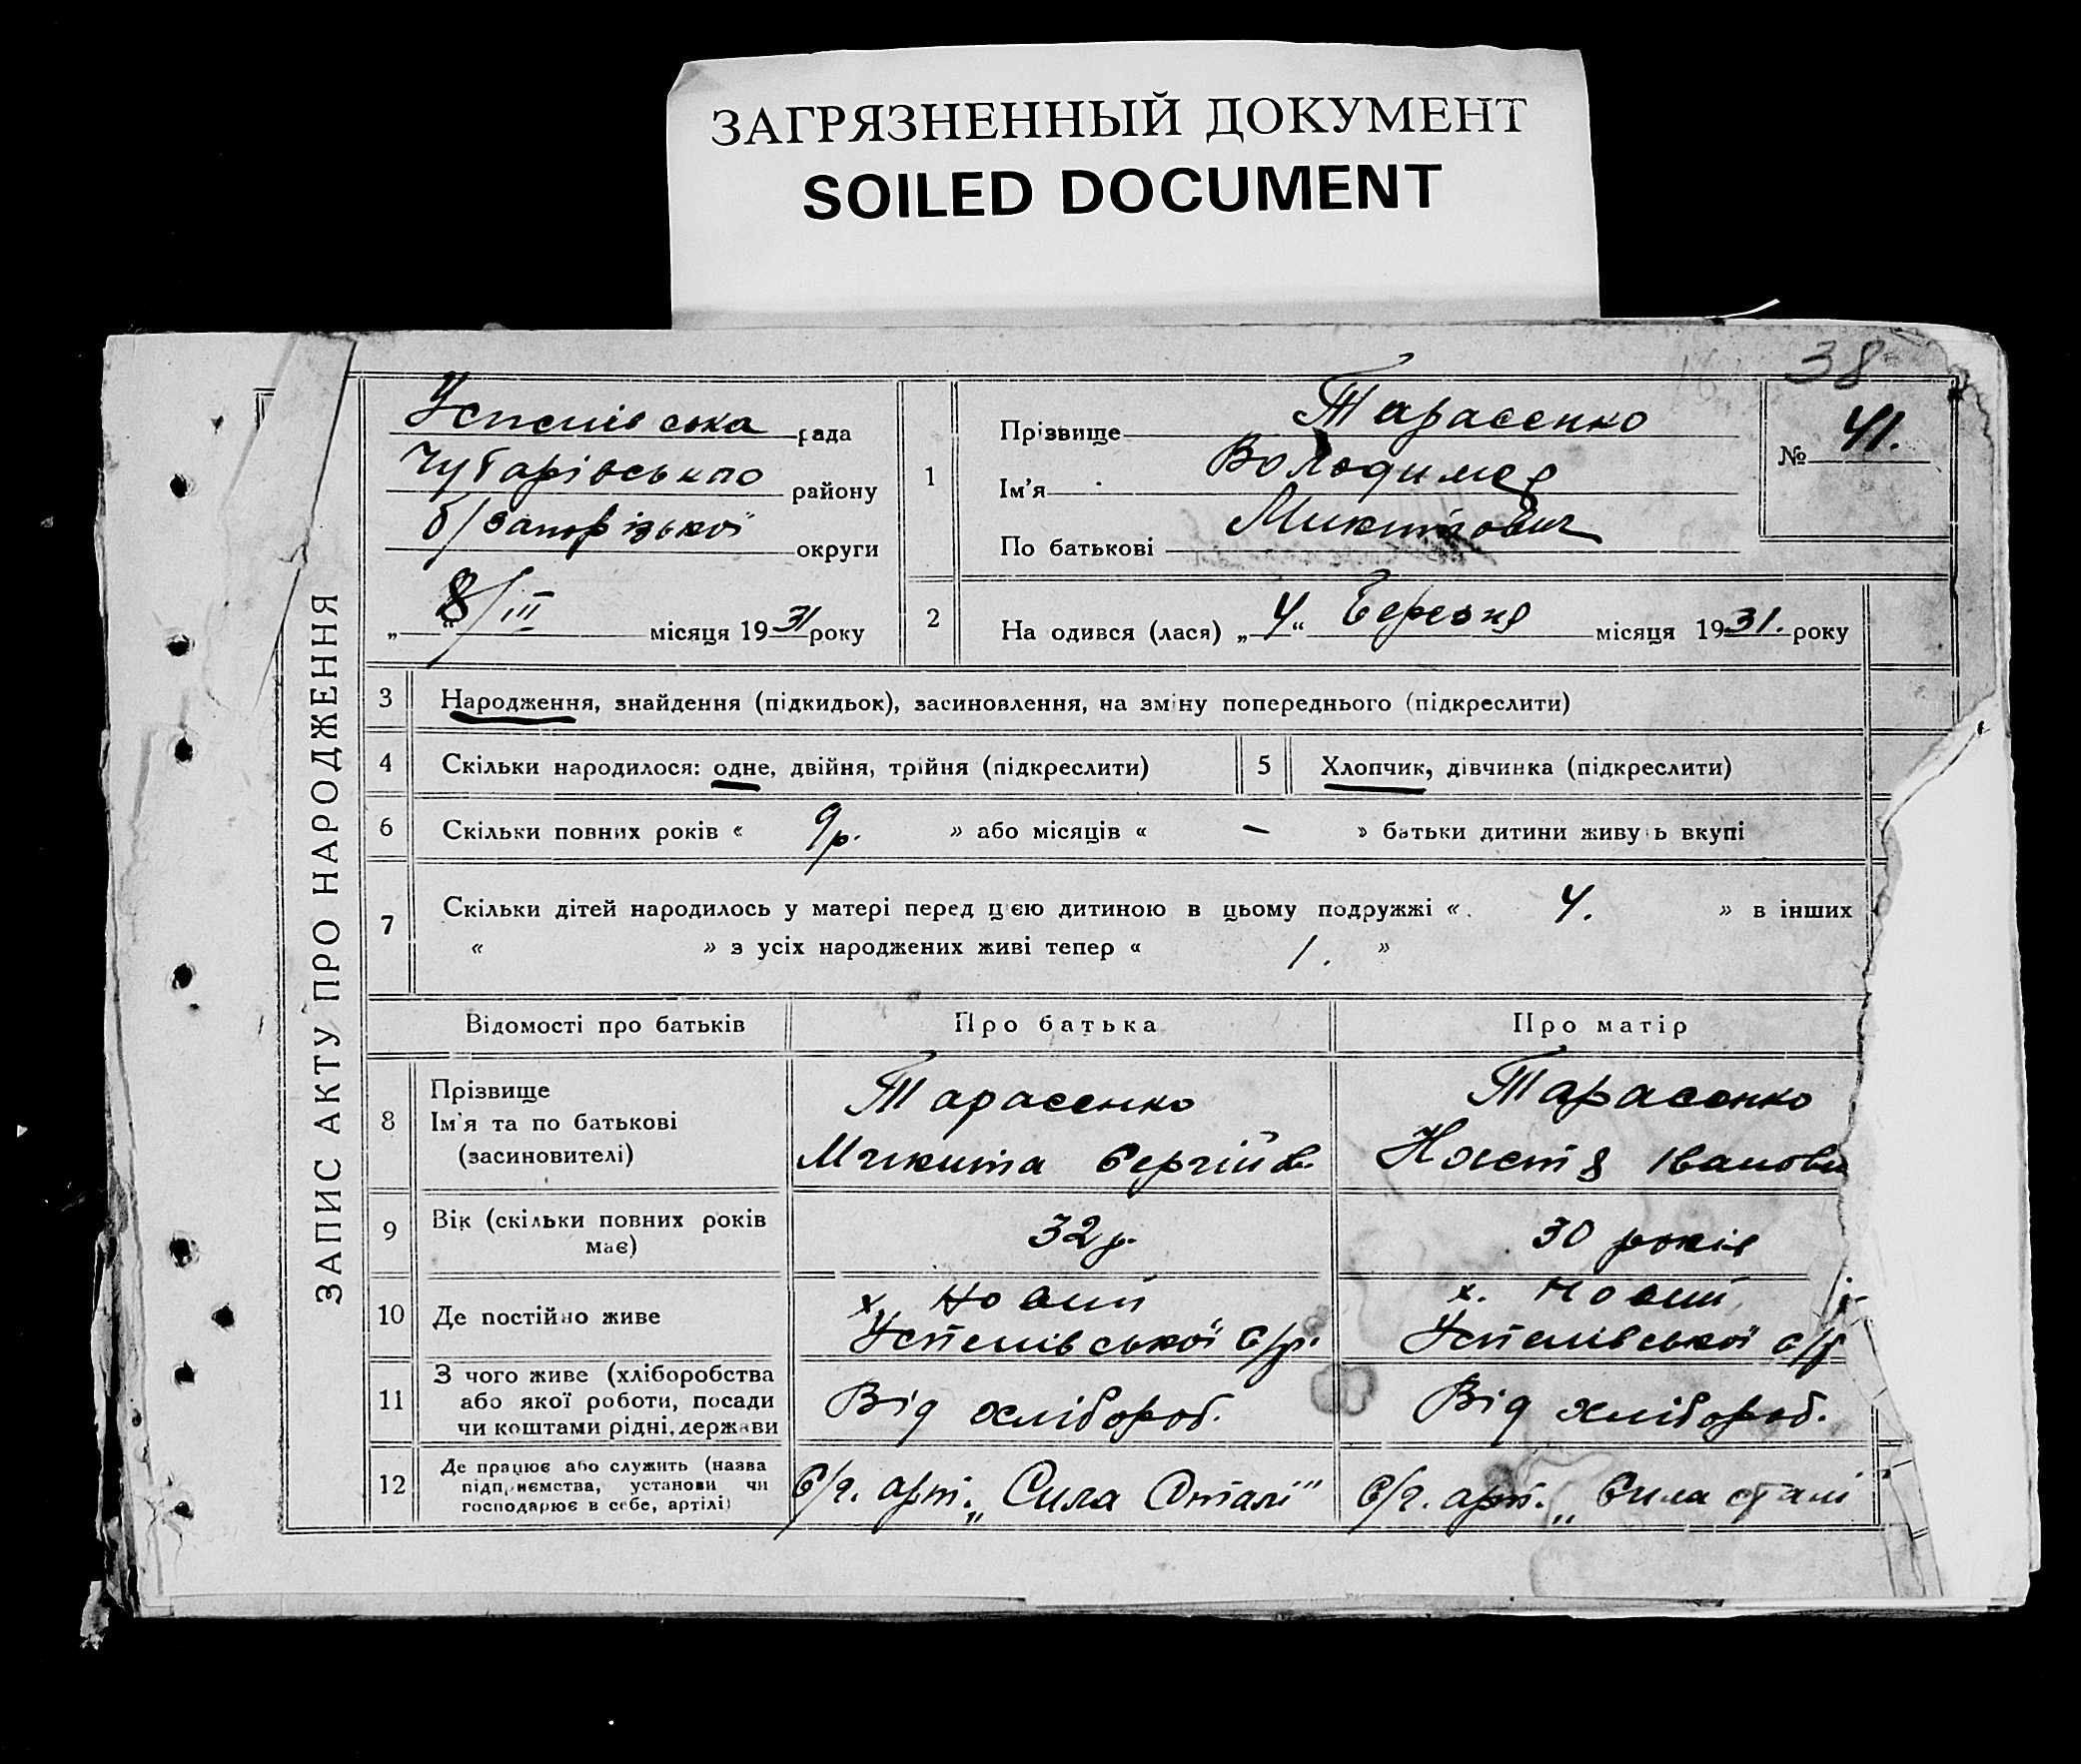 ЗАГРЯЗНЕННЫЙ ДОКУМЕНТ
SOILED DOCUMENT
38
ЗАПИС АКТУ ПРО НАРОДЖЕННЯ
Успенівська рада
Чубарівського району
б/Запорізької округи
„ 8/III “ місяця 1931 року
1
Прізвище Тарасенко
Ім'я Володимер
По батькові Микитович
№ 41.
2 На одився (лася) „4“ Березня місяця 1931. року
3 Народження, знайдення (підкидьок), засиновлення, на зміну попереднього (підкреслити)
4 Скільки народилося: одне, двійня, трійня (підкреслити) 5 Хлопчик, дівчинка (підкреслити)
6 Скільки повних років « 9 р. » або місяців « – » батьки дитини живу ь вкупі
7 Скільки дітей народилось у матері перед цією дитиною в цьому подружжі « 4. » в інших
« » з усіх народжених живі тепер « 1. »
Відомості про батьків Про батька Про матір
8 Прізвище
Ім'я та по батькові
(засиновителі)
Тарасенко
Микита Сергійов.
Тарасенко
Настя Іванов
9 Вік (скільки повних років
має)
32 р. 30 років
10 Де постійно живе
х. Новий
Успенівської с/р.
х. Новий
Успенівської с/р
11 З чого живе (хліборобства
або якої роботи, посади
чи коштами рідні, держави
Від хлібороб. Від хлібороб.
12 Де працює або служить (назва
підприємства, установи чи
господарює в себе, артілі)
С/г. арт. „Сила Сталі" С/г. арт. „Сила сталі